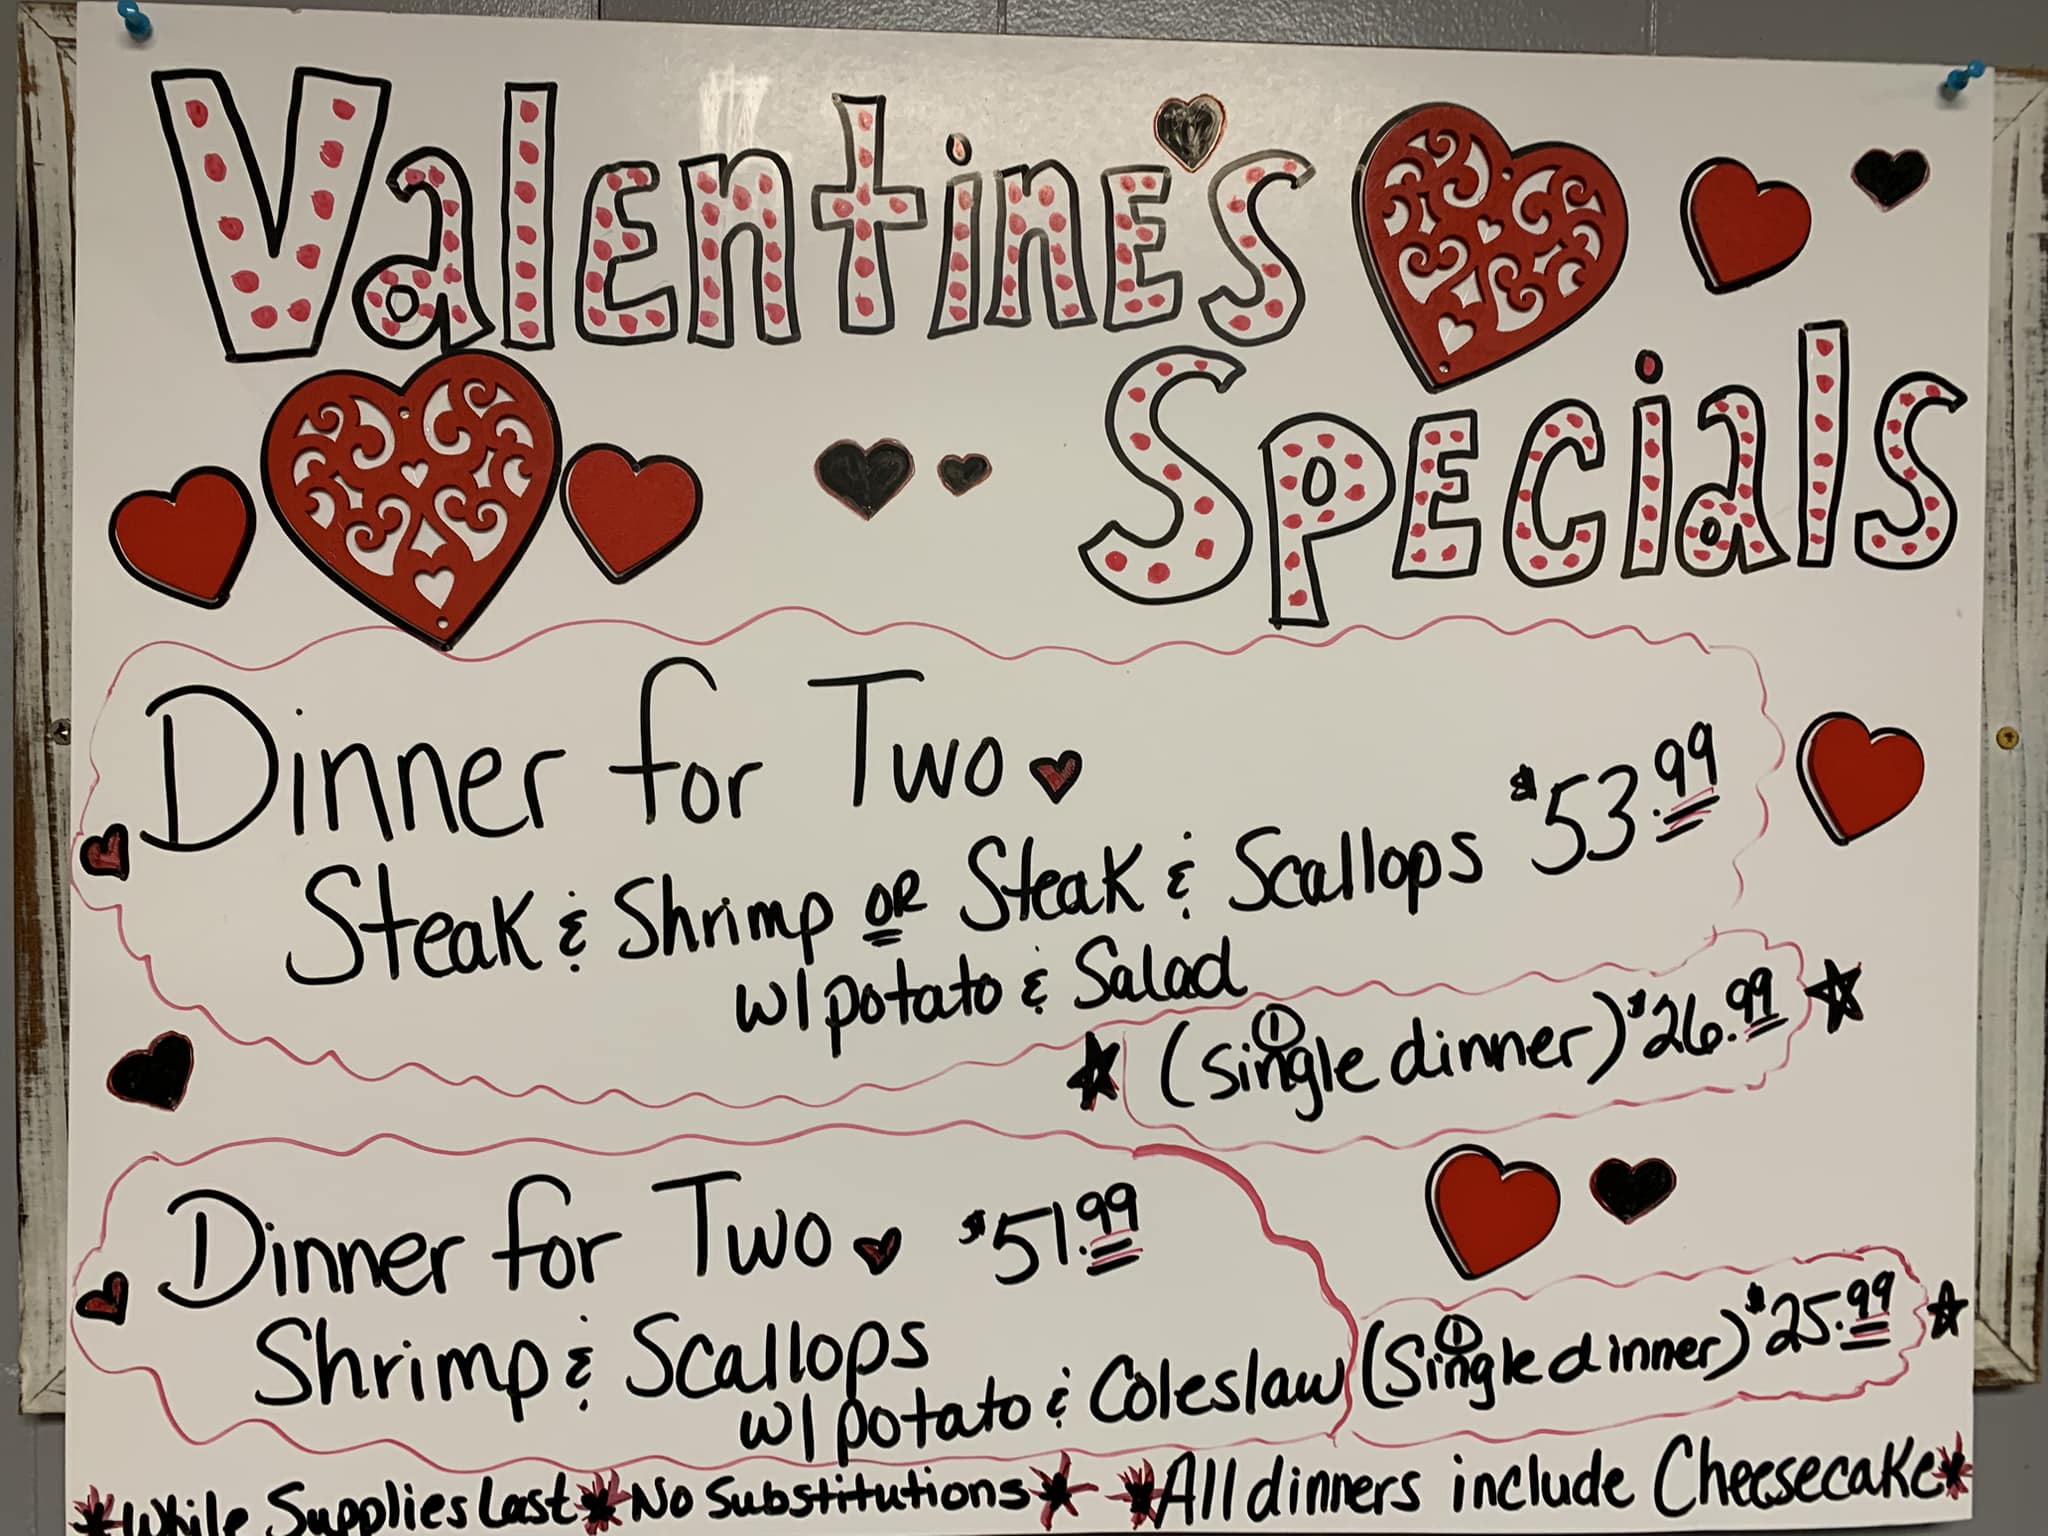 Valentine's
Specials
Dinner for Two
$53.99
Steak & Shrimp OR Steak & Scallops
w/ potato & Salad
(Single dinner) $26.99
1
Dinner for Two $51.99
Shrimp & Scallops
w/ potato & Coleslaw
(Single dinner) $25.99
1
*While Supplies Last*No Substitutions* *All dinners include Cheesecake*